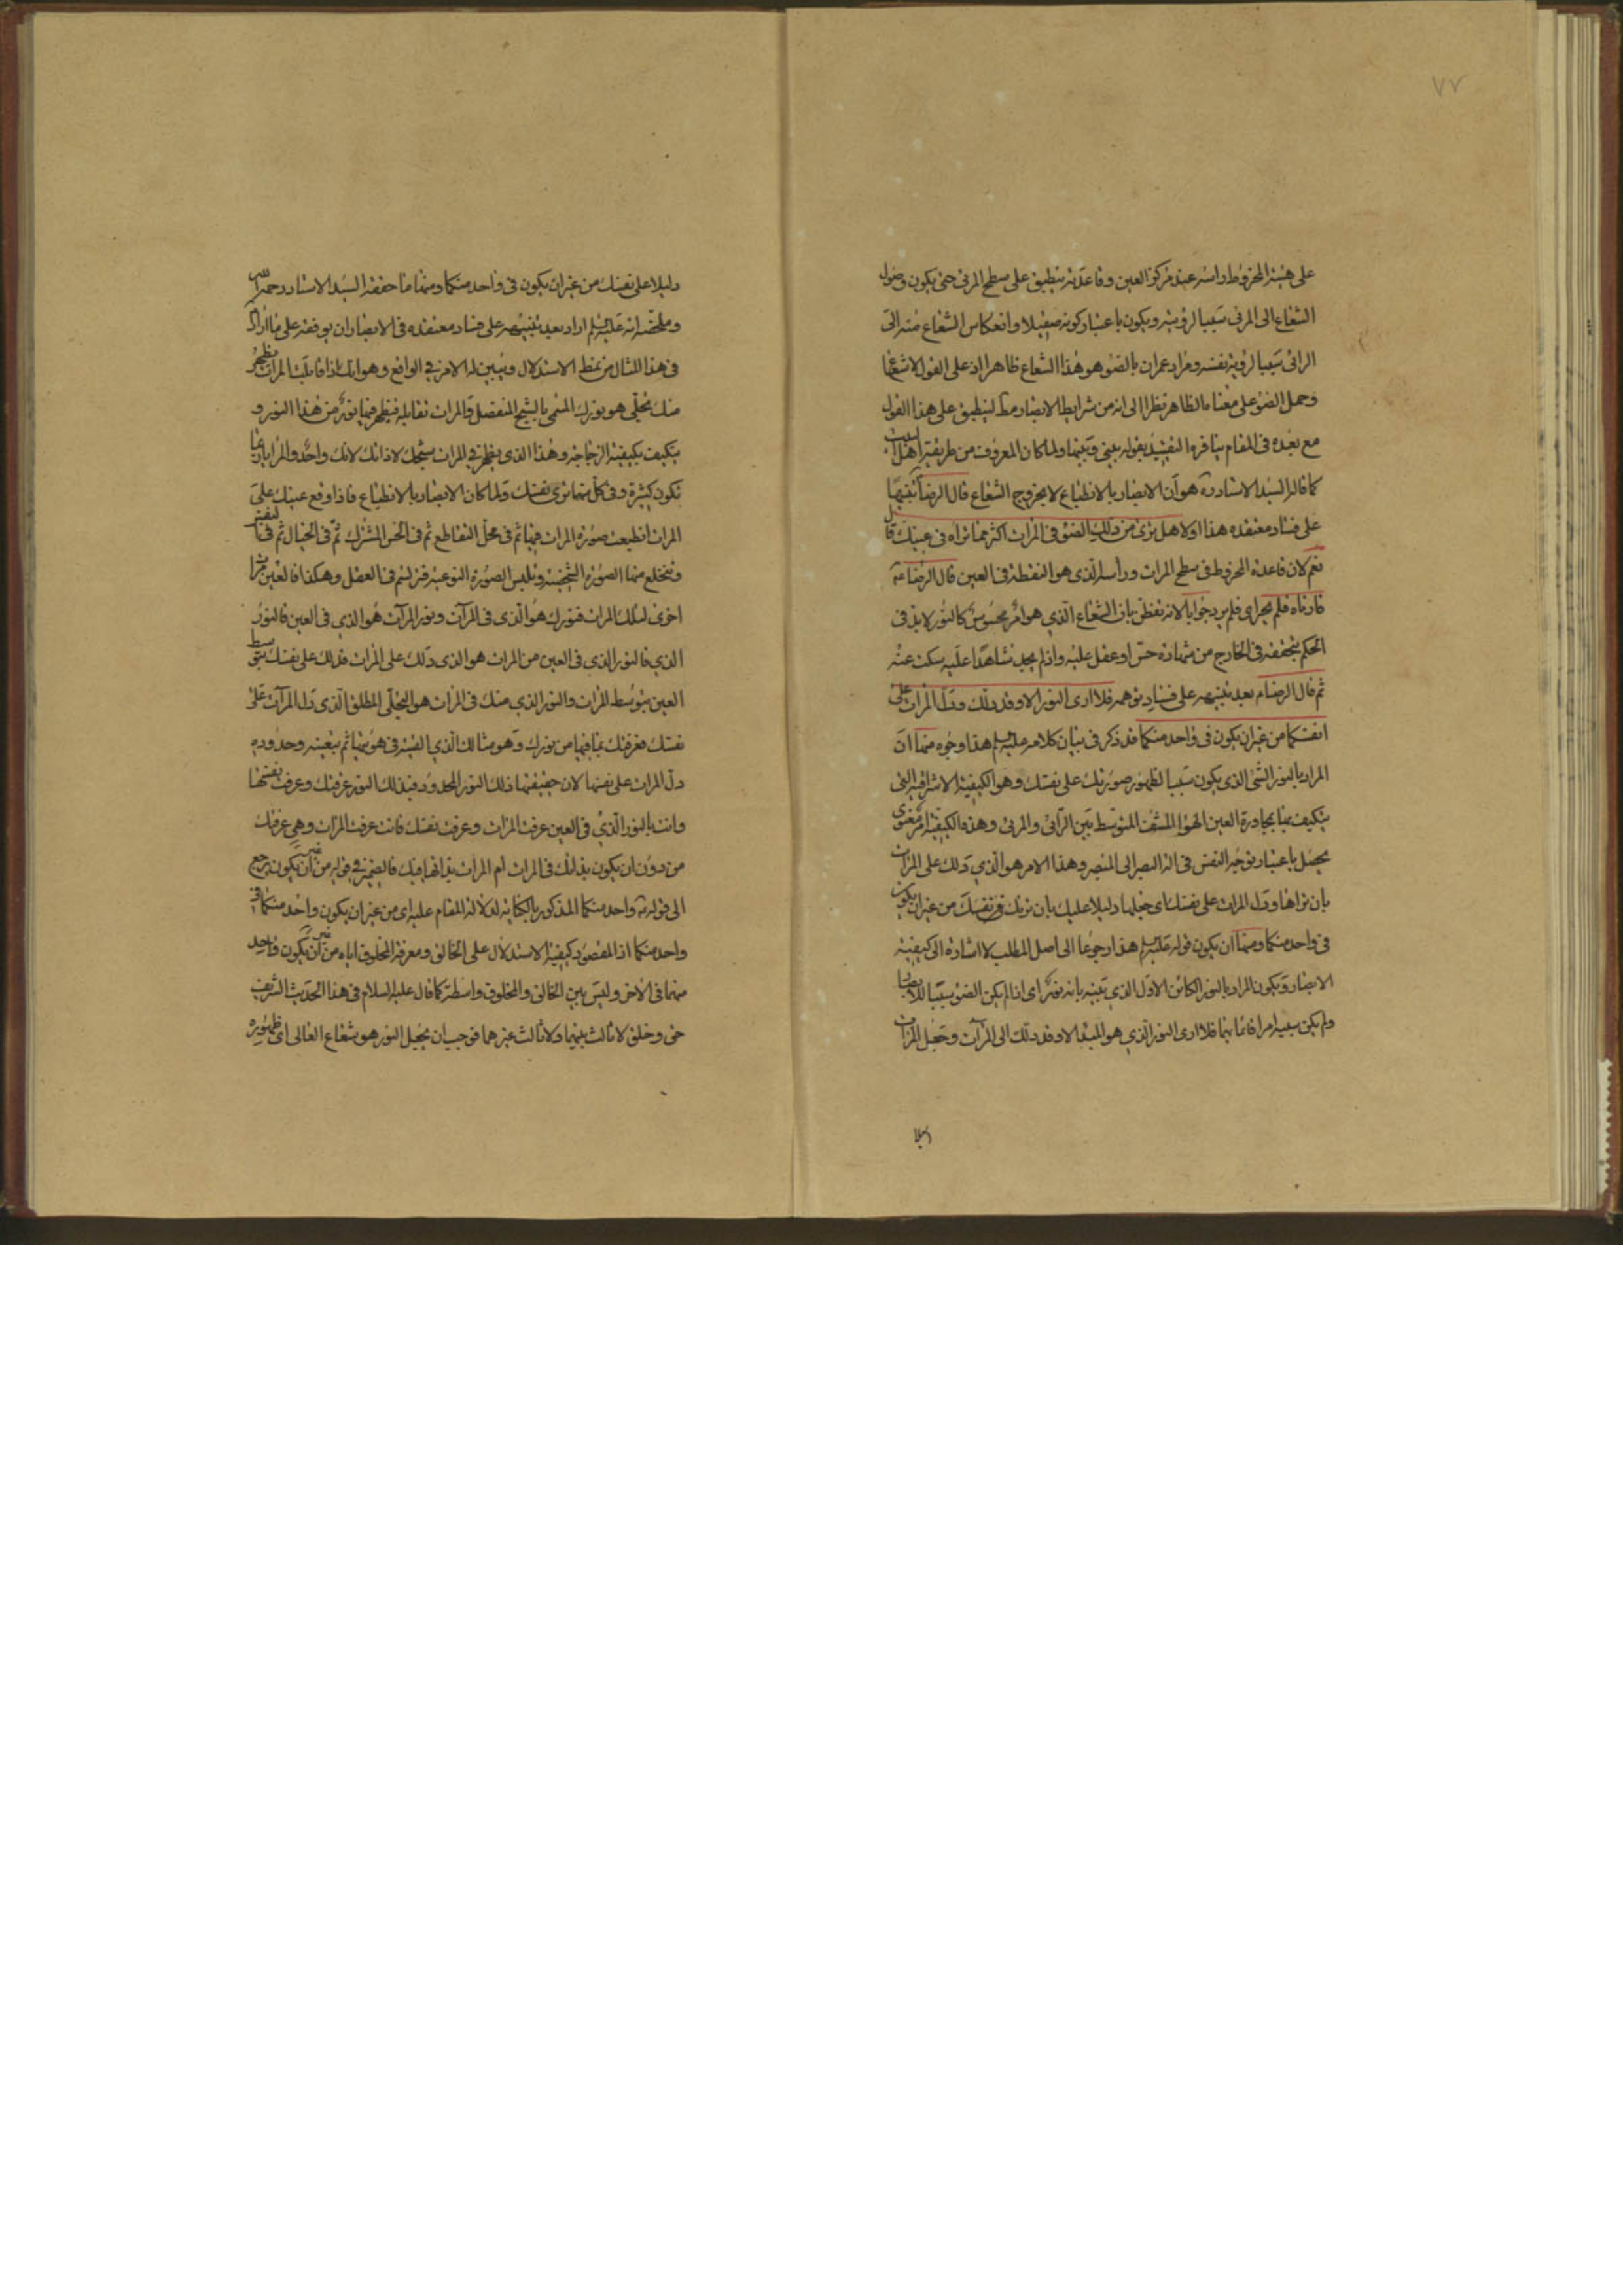 ٧٧
على هيئة المخروط راسه عند مركز العين وقاعدته تنطبق على سطح المرئى حتى يكون وصول
الشعاع الى المرئى سببا لرؤيته ويكون باعتبار كونه صيقيلا وانعكاس الشعاع منه الى
الرائى سببا لرؤية نفسه ومراد عمران بالضوء هو هذا الشعاع ظاهرا اذ على القول الاشعاع
وحمل الضوء على معناه الظاهر نظرا الى انه من شرايط الابصار مط لينطبق على هذا القول
مع بعده فى المقام ينافره التقييد بقوله بينى وبينها ولما كان المعروف من طريقة اهل البيت
كما قاله السيد الاستاد ره هو ان الابصار بالانطباع لا بخروج الشعاع قال الرضا تنبيها
على فساد معتقده هذا اولا هل ترى من ذلك الضوء فى المرات اكثر مما تراه فى عينك قال
نعم لان قاعدة المخروط فى سطح المرات وراسه الذى هو النقطة فى العين قال الرضا ع
فارناه فلم يحر اى فلم يرد جوابا لانه تفطن بان الشعاع الذي هو امر محسوس كالنور لا بد فى
الحكم بتحققه فى الخارج من شهادة حس او عقل عليه واذ لم يجد شاهدا عليه سكت عنه
ثم قال الرضا م بعد تنبيهه على فساد توهمه فلا ارى النور الا وقد دلك ودل المرات على
انفسكما من غير ان يكون فى واحد منكما قد ذكر فى بيان كلامه عليه السلم هذا وجوه منها ان
المراد بالنور الشئ الذى يكون سببا لظهور صورتك على نفسك وهو الكيفية الاشراقية التى
يتكيف بها بمجاورة العين الهواء المشف المتوسط بين الرائى والمرئى وهذه الكيفية امر معنوى
يحصل باعتبار توجه النفس فى الة البصر الى المبصر وهذا الامر هو الذي دلك على المرات
بان تراها ودل المرات على نفسك اى جعلها دليلا عليك بان تريك فى نفسك من غير ان يكون
فى واحد منكما ومنها ان يكون قوله عليه السلم هذا رجوعا الى اصل المطلب لا اشارة الى كيفية
الابصار ويكون المراد بالنور الكائن الاول الذي بينه بانه نور اى اذا لم يكن الضوء سببا للابصار
ولم يكن سببه امرا قائما بهما فلا ارى النور الذي هو المبدا الا وقد دلك الى المرآت وجعل المرات
دليلا
دليلا على نفسك من غير ان يكون فى واحد منكما ومنها ما حققه السيد الاستاد رحمه الله
وملخصه انه عليه السلم اراد بعد تنبيهه على فساد معتقده فى الابصار ان يوقفه على ما اراد
فى هذا المثال من نمط الاستدلال ويبين له الامر في الواقع وهو انك اذا قابلت المرات يظهر
منك تجلى هو نورك المسمى بالشبح المنفصل والمرات تقابله فيظهر فيها نور من هذا النور و
يتكيف بكيفية الزجاجية وهذا الذى يظهر في المرات شبحك لا ذاتك لانك واحد والمرايا ربما
تكون كثيرة وفى كل منها ترى نفسك ولما كان الابصار بالانطباع فاذا وقع عينك على
المرات انطبعت صورة المرات فيها ثم فى محل التقاطع ثم فى الحس المشترك ثم فى الخيال ثم فى النفس
وتنخلع منها الصورة الشخصية وتلبس الصورة النوعية فترتسم فى العقل وهكذا فالعين مرات
اخرى لتلك المرات فنورك هو الذى فى المرآت ونور المرآت هو الذي فى العين فالنور
الذي فالنور الذي فى العين من المرات هو الذى دلك على المرات فدلك على نفسك بتوسط
العين بتوسط المرات والنور الذي منك فى المرات هو التجلى المطلق الذى دل المرآت على
نفسك فعرفتك بما فيها من نورك وهو مثالك الذي القيته فى هويتها ثم بتعينه وحدوده
دل المرات على نفسها لان حقيقتها ذلك النور المحدود فبذلك النور عرفتك وعرفت نفسها
وانت بالنور الذي فى العين عرفت المرات وعرفت نفسك فانت عرفت المرات وهى عرفتك
من دون ان يكون بذاتك فى المرات ام المرات بذاتها فيك فالضمير في قوله من غير ان يكون يرجع
الى قوله ع واحد منكما المذكور بالكناية لدلالة المقام عليه اى من غير ان يكون واحد منكما فى
واحد منكما اذ المقصود كيفية الاستدلال على الخالق ومعرفة المخلوق اياه من غير ان يكون واحد
منهما فى الاخر وليس بين الخالق والمخلوق واسطة كما قال عليه السلام فى هذا الحديث الشريف
حق وخلق لا ثالث بينهما ولا ثالث غيرهما فوجب ان يجعل النور هو شعاع العالى اى ظهوره